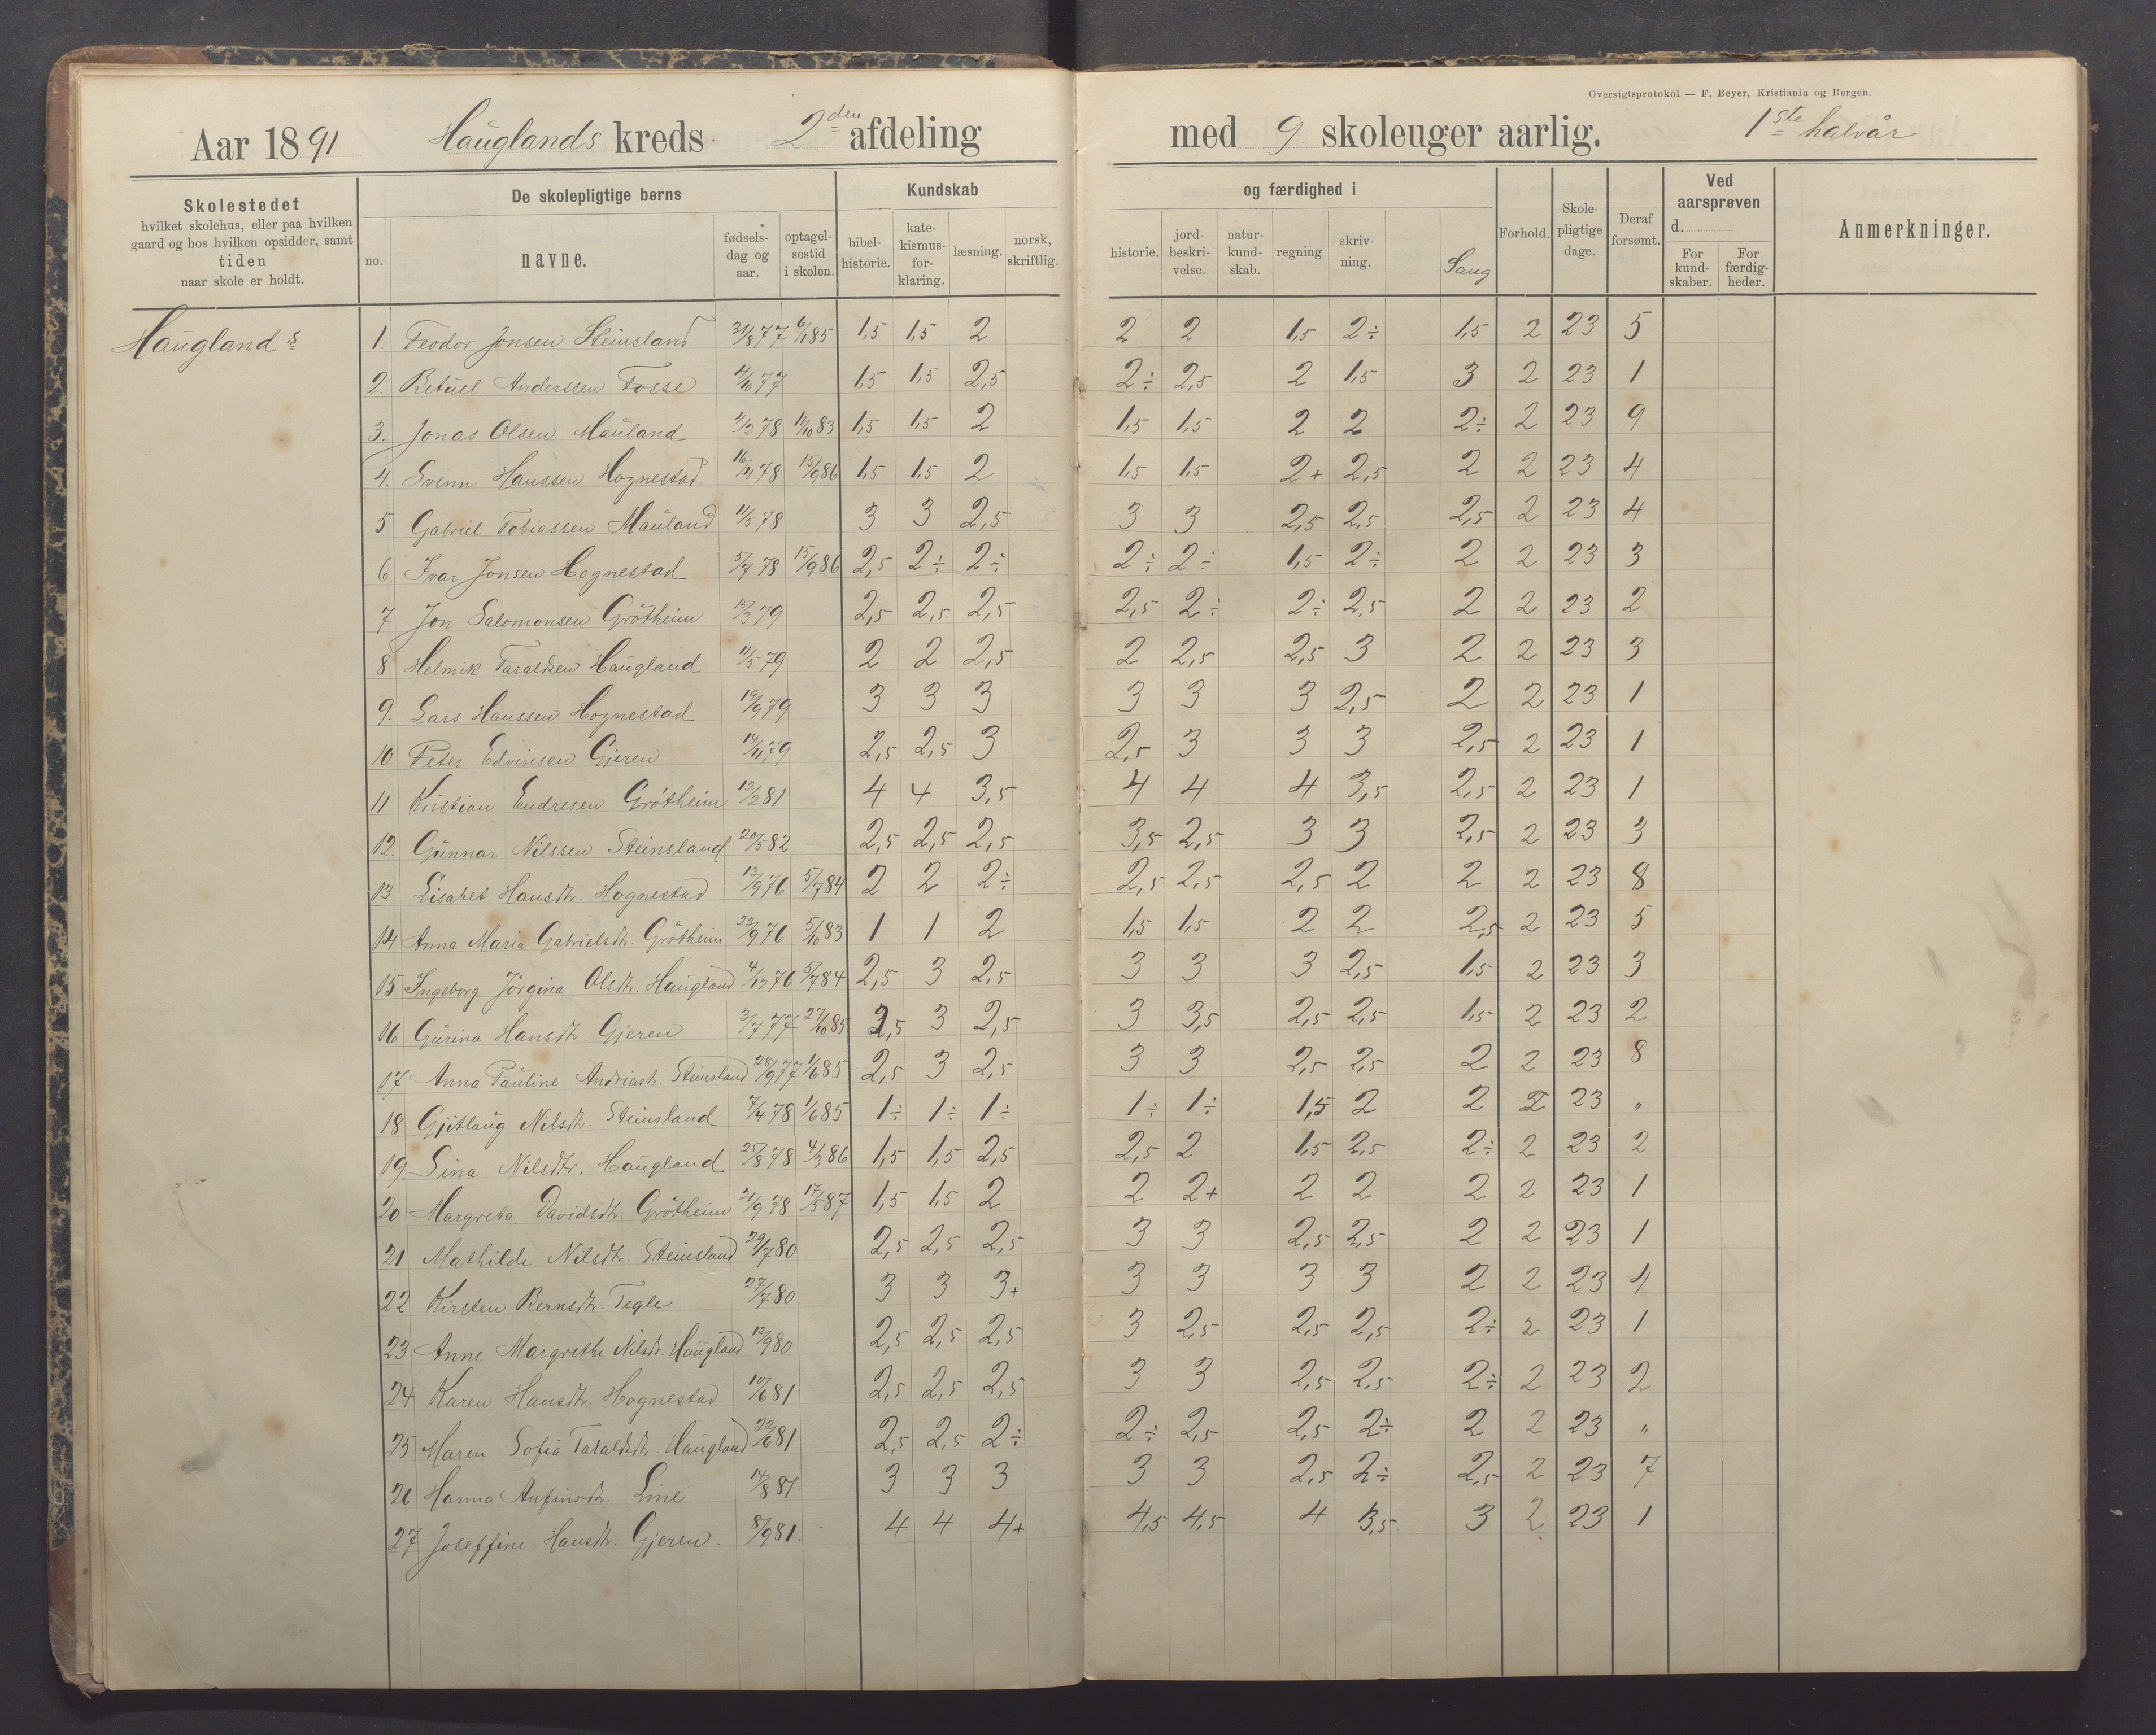 Oversigtsprotokol — F. Beyer, Kristiania og Bergen.
Aar 1891 Hauglands kreds 2den afdeling med 9 skoleuger aarlig. 1ste halvår
Skolestedet
hvilket skolehus, eller paa hvilken
gaard og hos hvilken opsidder, samt
tiden
naar skole er holdt.
De skolepligtige børns
no. navne. fødsels-dag og aar. optagel-sestid i skolen.
Kundskab og færdighed i
bibel-historie. kate-kismus-for-klaring. læsning. norsk, skriftlig. historie. jord-beskri-velse. natur-kund-skab. regning skriv-ning. Sang
Forhold. Skole-pligtige dage. Deraf forsømt.
Ved aarsprøven d. For kund-skaber. For færdig-heder.
Anmerkninger.
Haugland s
1. Teodor Jonsen Steinsland 31/8 77 6/1 85 1,5 1,5 2 2 2 1,5 2÷ 1,5 2 23 5
2. Betuel Anderssen Fosse 4/10 77 1,5 1,5 2,5 2÷ 2,5 2 1,5 3 2 23 1
3. Jonas Olsen Mauland 4/2 78 11/10 83 1,5 1,5 2 1,5 1,5 2 2 2÷ 2 23 9
4. Svenn Hanssen Hognestad 16/4 78 15/9 86 1,5 1,5 2 1,5 1,5 2+ 2,5 2 2 23 4
5 Gabriel Tobiassen Mauland 11/5 78 3 3 2,5 3 3 2,5 2,5 2,5 2 23 4
6. Ivar Jonsen Hognestad 5/7 78 15/9 86 2,5 2÷ 2÷ 2÷ 2÷ 1,5 2÷ 2 2 23 3
7 Jon Salomonsen Grötheim 15/3 79 2,5 2,5 2,5 2,5 2÷ 2÷ 2,5 2 2 23 2
8 Helmik Taraldsen Haugland 11/5 79 2 2 2,5 2 2,5 2,5 3 2 2 23 3
9. Lars Hanssen Hognestad 19/9 79 3 3 3 3 3 3 2,5 2 2 23 1
10 Peter Edvinsen Gjeren 14/11 79 2,5 2,5 3 2,5 3 3 3 2,5 2 23 1
11 Kristian Endresen Grötheim 12/2 81 4 4 3,5 4 4 4 3,5 2,5 2 23 1
12. Gunnar Nilssen Steinsland 20/5 82 2,5 2,5 2,5 3,5 2,5 3 3 2,5 2 23 3
13 Lisabet Hansdtr. Hognestad 13/9 76 5/7 84 2 2 2÷ 2,5 2,5 2,5 2 2 2 23 8
14 Anna Maria Gabrielsdtr. Grötheim 23/9 76 5/10 83 1 1 2 1,5 1,5 2 2 2,5 2 23 5
15 Ingeborg Jörgina Olsdtr. Haugland 4/12 76 5/7 84 2,5 3 2,5 3 3 3 2,5 1,5 2 23 3
16 Gurina Hansdtr Gjeren 3/7 77 27/10 85 2,5 3 2,5 3 3,5 2,5 2,5 1,5 2 23 2
17. Anna Pauline Andriastr. Steinsland 28/9 77 1/6 85 2,5 3 2,5 3 3 2,5 2,5 2 2 23 8
18 Gjitlaug Nilsdtr. Steinsland 7/4 78 1/6 85 1÷ 1÷ 1÷ 1÷ 1÷ 1,5 2 2 2 23 "
19. Lina Nilsdtr. Haugland 25/8 78 4/3 86 1,5 1,5 2,5 2,5 2 1,5 2,5 2÷ 2 23 2
20 Margreta Davidsdtr. Grötheim 21/9 78 17/5 87 1,5 1,5 2 2 2+ 2 2 2 2 23 1
21 Mathilde Nilsdtr. Steinsland 29/7 80 2,5 2,5 2,5 3 3 2,5 2,5 2 2 23 1
22 Kirsten Bernsdtr. Tegle 27/7 80 3 3 3+ 3 3 3 3 2 2 23 4
23 Anne Margrethe Nilsdtr. Haugland 12/9 80 2,5 2,5 2,5 3 2,5 2,5 2,5 2÷ 2 23 1
24 Karen Hansdtr. Hognestad 10/6 81 2,5 2,5 2,5 3 3 2,5 2,5 2÷ 2 23 2
25 Maren Sofia Taraldsdtr. Haugland 20/6 81 2,5 2,5 2÷ 2÷ 2,5 2,5 2÷ 2 2 23 "
26 Hanna Anfinsdtr. Line 14/8 81. 3 3 3 3 3 2,5 2÷ 2,5 2 23 7
27 Joseffine Hansdtr. Gjeren. 8/9 81. 4 4 4+ 4,5 4,5 4 3,5 3 2 23 1